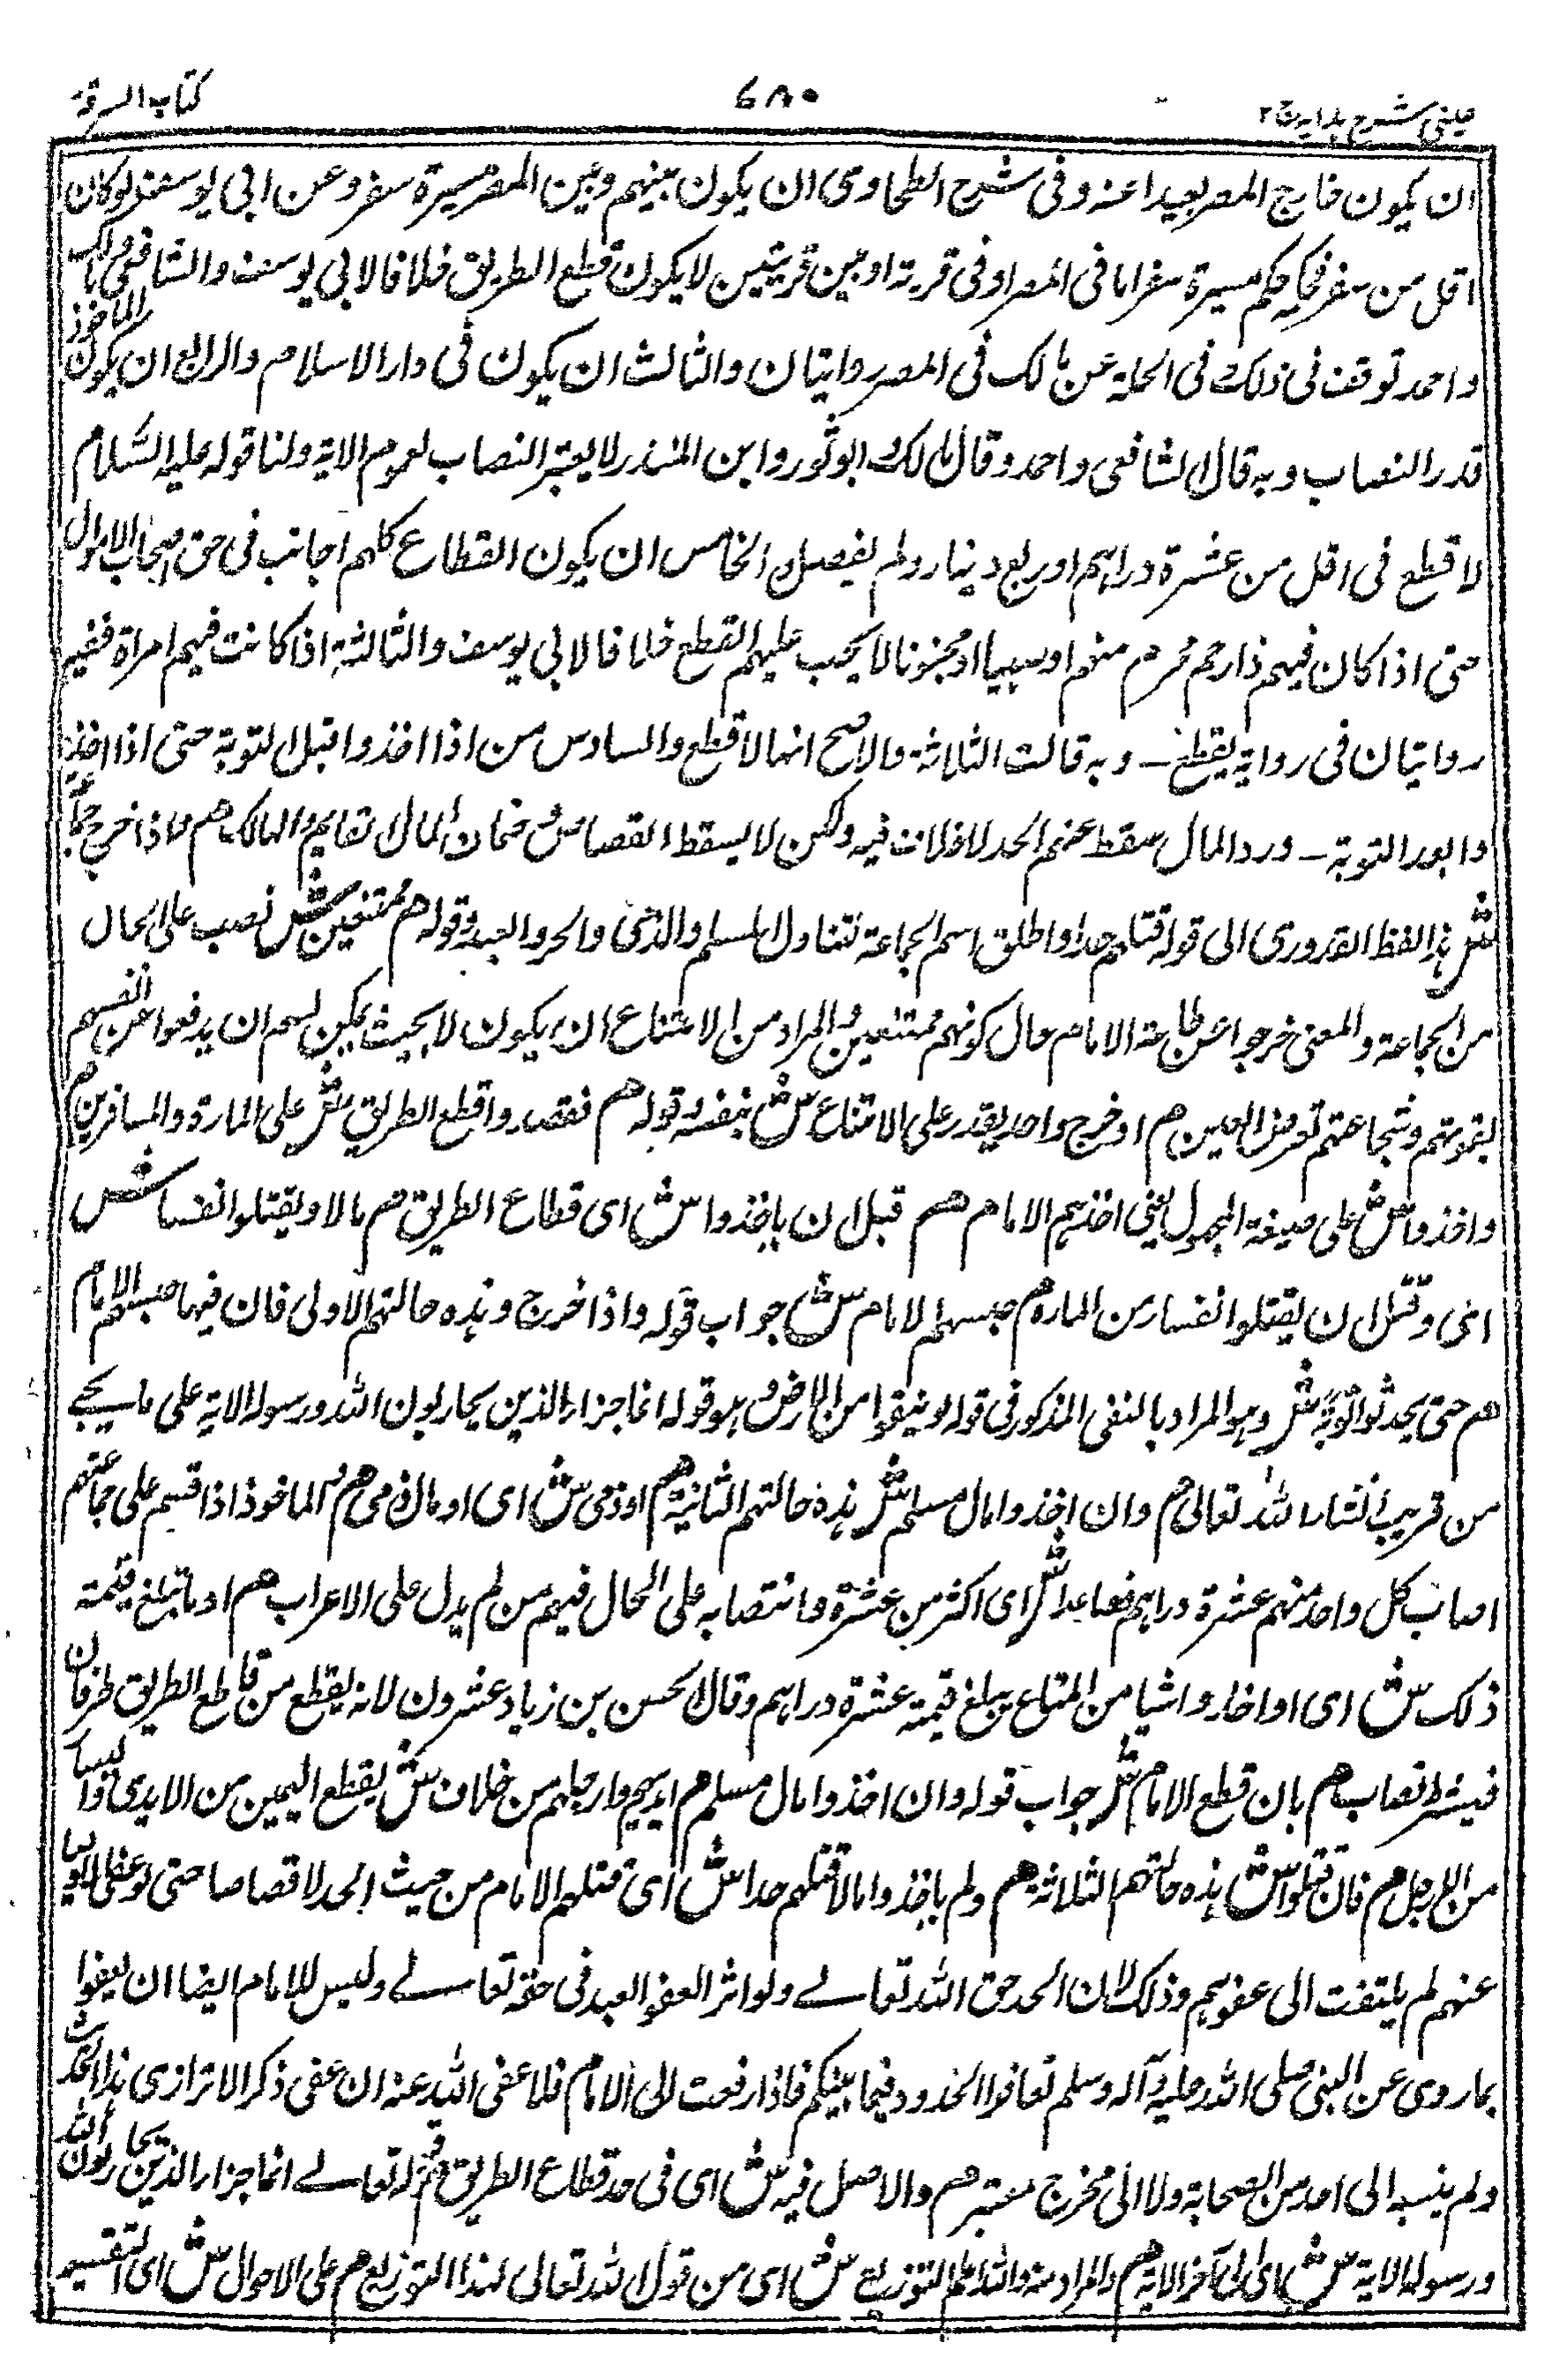 عینی شرح ہدایہ ج ۲
٦٨٠
کتاب السرقة
ان یکون خارج المصر بعیدا عنه وفی شرح الطحاوی ان یکون بینهم وبین المصر مسیرة سفر وعن ابی یوسف لوکان
اقل من سفر فحکمه حکم مسیرة سفر اما فی المصر او فی قریة او بین قریتین لا یکون قطع الطریق خلافا لابی یوسف والشافعی ومالک
واحمد توقف فی ذلک فی الحلیة عن مالک فی المصر روایتان والثالث ان یکون فی دار الاسلام والرابع ان یکون المأخوذ
قدر النصاب وبه قال الشافعی واحمد وقال مالک وابو ثور وابن المنذر لا یعتبر النصاب لعموم الایة ولنا قوله علیه السلام
لا قطع فی اقل من عشرة دراهم او ربع دینار ولم یفصل والخامس ان یکون القطاع کلهم اجانب فی حق اصحاب الاموال
حتی اذا کان فیهم ذا رحم محرم منهم او صبیا او مجنونا لا یجب علیهم القطع خلافا لابی یوسف والثالثة اذا کانت فیهم امراة ففیه
روایتان فی روایة یقطع ــ وبه قالت الثلاثة والاصح انها لا قطع والسادس من اذا اخذوا قبل التوبة حتی اذا اخذ
وا بعد التوبة ــ ورد المال سقط عنهم الحد لا خلاف فیه ولکن لا یسقط القصاص وضمان المال لقایم والهالک هم واذا خرج جماعة
ش هذا لفظ القدوری الی قوله قتلهم حدا واطلق اسم الجماعة لتناول المسلم والذمی والحر والعبد وقوله هم ممتنعین ش نصب علی الحال
من الجماعة والمعنی خرجوا عن طاعة الامام حال کونهم ممتنعین والمراد من الامتناع ان یکون لا بحیث یمکن لهم ان یدفعوا عن انفسهم
بقوتهم وشجاعتهم تعرض العین هم او خرج واحد یقدر علی الامتناع ش بنفسه وقوله هم فقصدوا قطع الطریق ش علی المارة والمسافرین هم
واخذوا ش علی صیغة المجهول یعنی اخذهم الامام هم قبل ان یاخذوا ش ای قطاع الطریق هم مالا ویقتلوا نفسا ش
ای وقبل ان یقتلوا نفسا من المارة هم حبسهم الامام ش جواب قوله واذا خرج وهذه حالتهم الاولی فان فیها حبسهم الامام
هم حتی یحدثوا توبة ش وهو المراد بالنفی المذکور فی قوله او ینفوا من الارض وهو قوله انما جزاء الذین یحاربون الله ورسوله الایة علی ما یجئے
من قریب ان شاء الله تعالی هم وان اخذوا مال مسلم ش هذه حالتهم الثانیة هم او ذمی ش ای او مال ذمی هم والماخوذ اذا قسم علی جماعتهم
اصاب کل واحد منهم عشرة دراهم فصاعدا ش ای اکثر من عشرة وانتصابه علی الحال فیهم من لم یدل علی الاعراب هم او ما تبلغ قیمته
ذلک ش ای او اخذوا اشیا من المتاع یبلغ قیمته عشرة دراهم وقال الحسن بن زیاد عشرون لانه یقطع من قاطع الطریق طرفان
فیشترط نصاب هم بان قطع الامام ش جواب قوله وان اخذوا مال مسلم هم ایدیهم وارجلهم من خلاف ش یقطع الیمین من الایدی والیسار
من الارجل هم فان قتلوا ش هذه حالتهم الثلاثة هم ولم یاخذوا مالا قتلهم حدا ش ای قتلهم الامام من حیث الحد لا قصاصا حتی لو عفی الاولیا
عنهم لم یلتفت الی عفوهم وذلک لان الحد حق الله تعالے ولو اثر العفو العبد فی حقه تعالے ولیس للامام ایضا ان یعفوا
بما روی عن النبی صلی الله علیه وآله وسلم تعافوا الحدود فیما بینکم فاذا رفعت الی الامام فلا عفی الله عنه ان عفی ذکر الاترازی هذا الحدیث
ولم ینسبه الی احد من الصحابة ولا الی مخرج معتبر هم والاصل فیه ش ای فی حد قطاع الطریق هم قوله تعالے انما جزاء الذین یحاربون الله
ورسوله الایة ش ای الی آخر الایة هم والمراد منه والله اعلم التوزیع ش ای من قول الله تعالی لهذا التوزیع هم علی الاحوال ش ای التقسیم